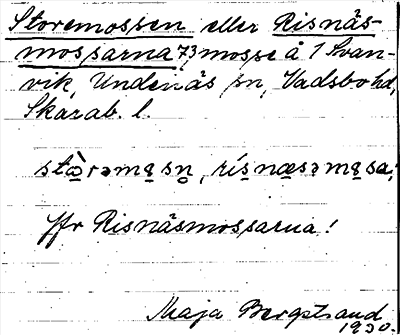 Storemossen eller Risnäs-
mossarna 73, mosse å 1 Svan-
vik, Undenäs sn, Vadsbo hd,
Skarab. l.
stò̱rəmo̱sn̥, rísnæsəmo̱sa;
Jfr Risnäsmossarna!
Maja Bergstrand
1930.